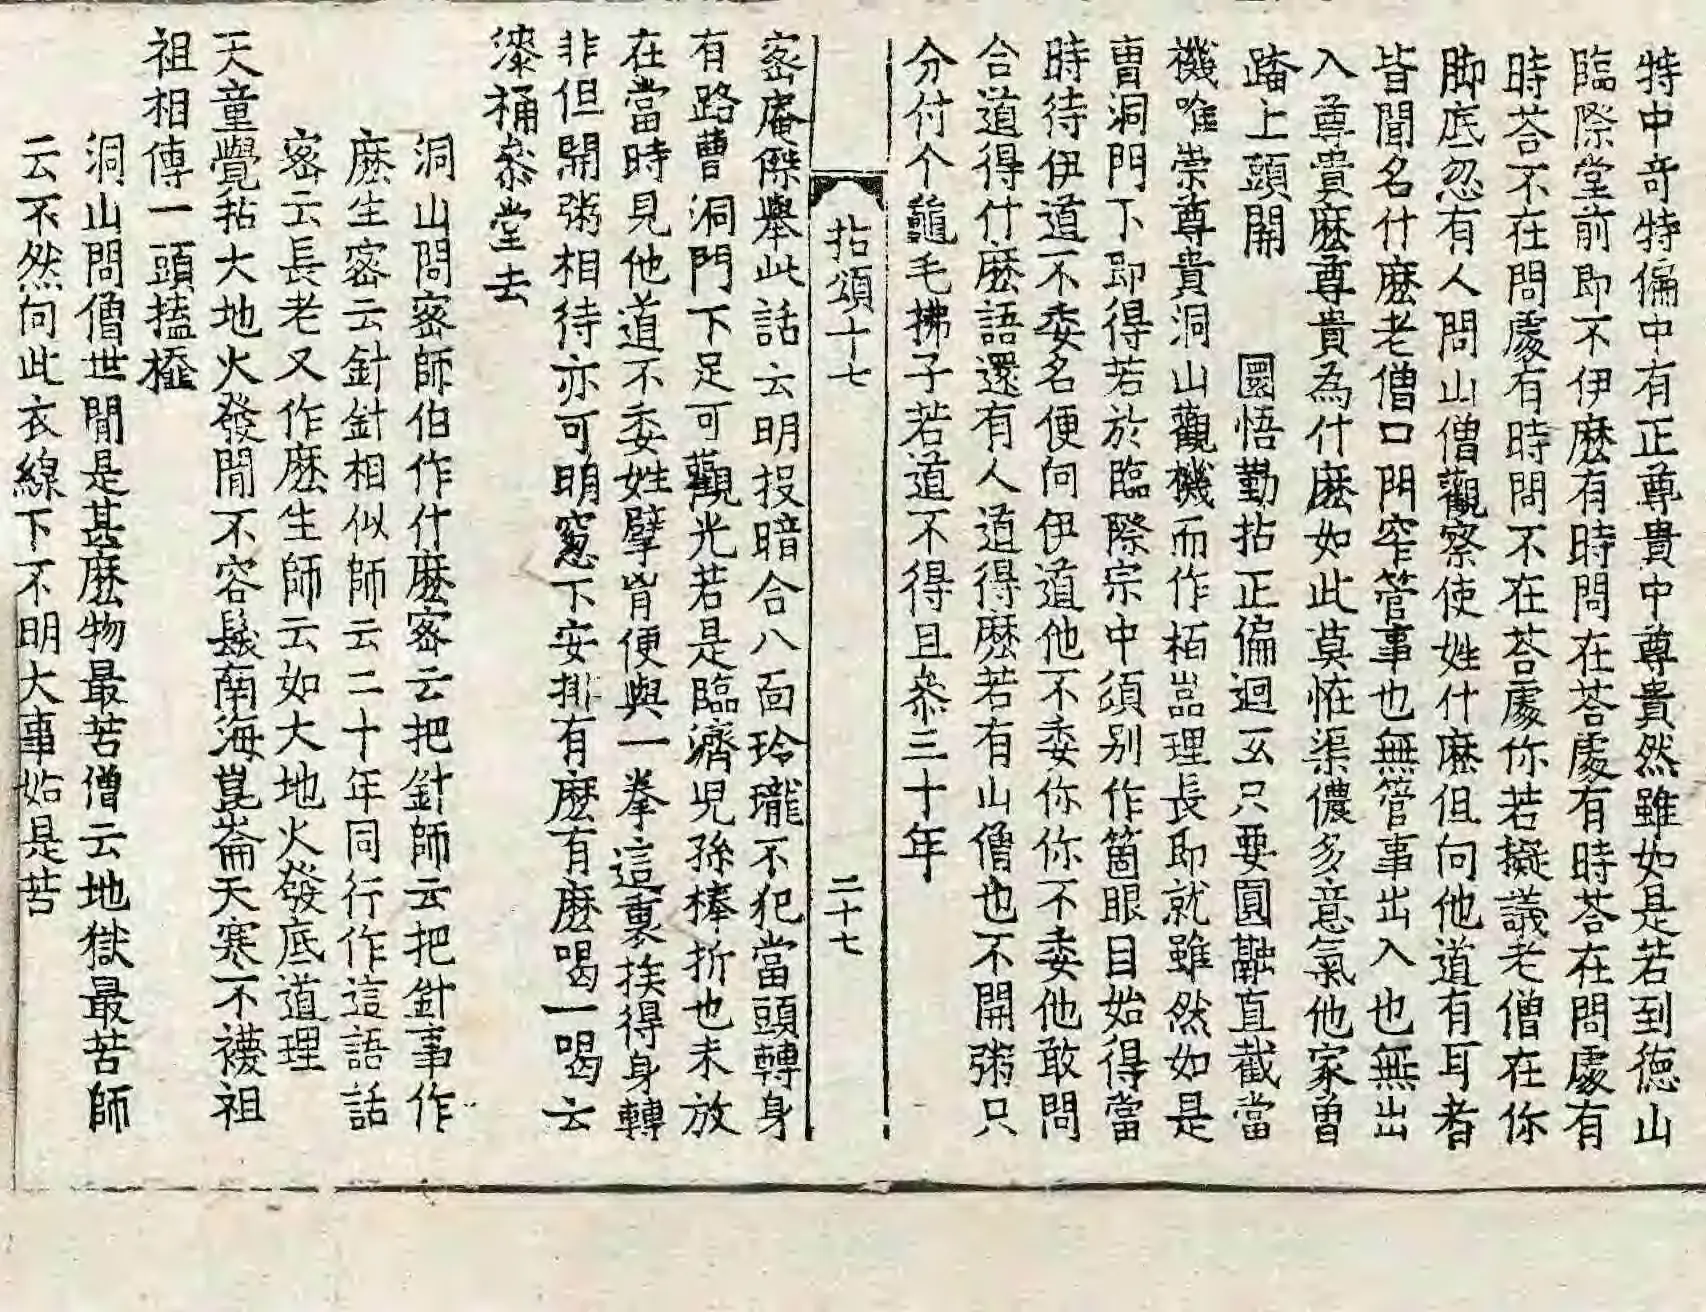 特中奇特偏中有正尊貴中尊貴然雖如是若到德山
臨際堂前即不伊麽有時問在荅處有時荅在問處有
時荅不在問處有時問不在荅處你若擬議老僧在你
脚底忽有人問山僧觀察使姓什麽但向他道有耳者
皆聞名什麽老僧口門窄管事也無管事出入也無出
入尊貴麽尊貴為什麽如此莫恠渠儂多意氣他家曽
踏上頭開　圜悟勤拈正偏迴互只要圓融直截當
機唯崇尊貴洞山觀機而作栢嵓理長即就雖然如是
曹洞門下即得若於臨際宗中須別作箇眼目始得當
時待伊道不委名便向伊道他不委你你不委他敢問
合道得什麽語還有人道得麽若有山僧也不開粥只
分付个龜毛拂子若道不得且叅三十年
拈頌十七　二十七
密庵傑舉此話云明投暗合八面玲瓏不犯當頭轉身
有路曹洞門下足可觀光若是臨濟兒孫棒折也未放
在當時見他道不委姓擘脊便與一拳這裏挨得身轉
非但開粥相待亦可明窓下安排有麽有麽喝一喝云
漆桶叅堂去
洞山問密師伯作什麽密云把針師云把針事作
麽生密云針針相似師云二十年同行作這語話
密云長老又作麽生師云如大地火發底道理
天童覺拈大地火發閒不容髮南海崑崙天寒不襪祖
祖相傳一頭搕𣜂
洞山問僧世間是甚麽物最苦僧云地獄最苦師
云不然向此衣線下不明大事始是苦